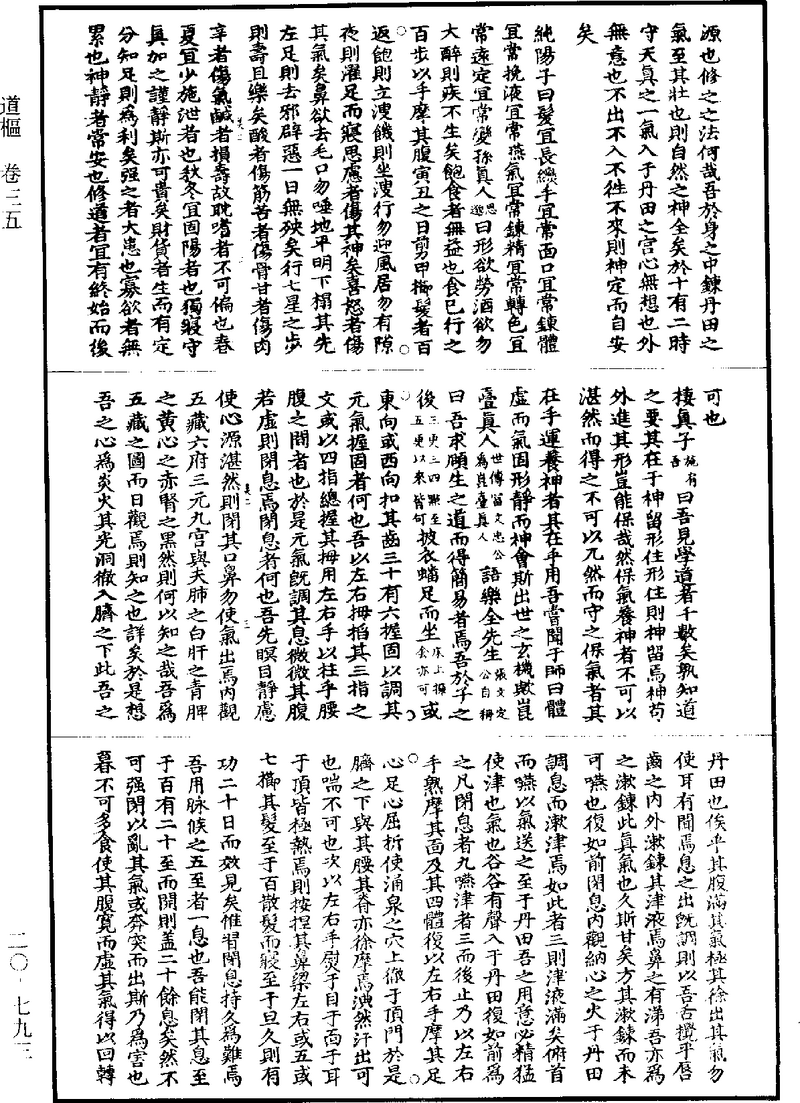 源也修之之法何哉吾於身之中鍊丹田之
氣至其壯也則自然之神全矣於十有二時
守天真之一氣入于丹田之宫心無想也外
無意也不出不入不徃不來則神定而自安
矣
純陽子曰髮宜長𢱢手宜常面口宜常鍊體
宜常挽液宜常燕氣宜常鍊精宜常轉色宜
常遠定宜常變孫真人思邈曰形欲勞酒欲勿
大醉則疾不生矣飽食者無益也食巳行之
百步以手摩其腹寅丑之日剪甲櫛髮者百
返飽則立溲饑則坐溲行勿迎風居勿有隙
夜則濯足而寢思慮者傷其神矣喜怒者傷
其氣矣鼻欲去毛口勿唾地平明下榻其先
左足則去邪辟惡一日無殃矣行七星之步
則壽且樂矣酸者傷筋苦者傷骨甘者傷肉
辛者傷氣鹹者損壽故耽嗜者不可偏也春
夏宜少施泄者也秋冬宜固陽者也獨寢守
真加之謹靜斯亦可貴矣財貨者生而有定
分知足則為利矣强之者大患也寡欲者無
累也神靜者常安也修道者宜有終始而後
可也
棲真子施有吾曰吾見學道者千數矣孰知道
之要其在于神留形住形住則神留焉神苟
外進其形豈能保哉然保氣養神者不可以
湛然而得之不可以兀然而守之保氣者其
在乎運養神者其在乎用吾嘗聞于師曰體
虚而氣固形靜而神會斯出世之玄機歟崑
臺真人世傳富文忠公為崑臺真人語樂全先生張文定公自稱
曰吾求頤生之道而得簡易者焉吾於子之
後三更三四點至五更以來皆可披衣蟠足而坐床上擁衾亦可或
東向或西向扣其齒三十有六握固以調其
元氣握固者何也吾以左右拇掐其三指之
文或以四指總握其拇用左右手以柱乎腰
腹之間者也於是元氣旣調其息微微其腹
若虚則閉息焉閉息者何也吾先瞑目靜慮
使心源湛然則閉其口鼻勿使氣出焉内觀
五藏六府三元九宫與夫肺之白肝之青脾
之黄心之赤腎之黑然則何以知之哉吾為
五藏之圖而日觀焉則知之也詳矣於是想
吾之心為炎火其光洞徹入臍之下此吾之
丹田也俟乎其腹滿其氣極其徐出其氣勿
使耳有聞焉息之出旣調則以吾舌攪乎唇
齒之内外漱鍊其津液焉鼻之有涕吾亦為
之漱鍊此真氣也久斯甘矣方其漱鍊而未
可嚥也復如前閉息内觀納心之火于丹田
調息而漱津焉如此者三則津液滿矣俯首
而嚥以氣送之至于丹田吾之用意必精猛
使津也氣也谷谷有聲入于丹田復如前為
之凡閉息者九嚥津者三而後止乃以左右
手熟摩其面及其四體復以左右手摩其足
心足心屈折使涌泉之穴上像于頂門於是
臍之下與其腰其脊亦徐摩焉洟然汗出可
也喘不可也次以左右手熨于目于面于耳
于頂皆極熱焉則按捏其鼻梁左右或五或
七櫛其髮至于百散髮而寢至于旦久則有
功二十日而效見矣惟胷閉息持久為難焉
吾用脉候之五至者一息也吾能閉其息至
于百有二十至而開則蓋二十餘息矣然不
可强閉以亂其氣或奔突而出斯乃為害也
暮不可多食使其腹寛而虚其氣得以回轉
道樞 卷三五
二〇·七九三